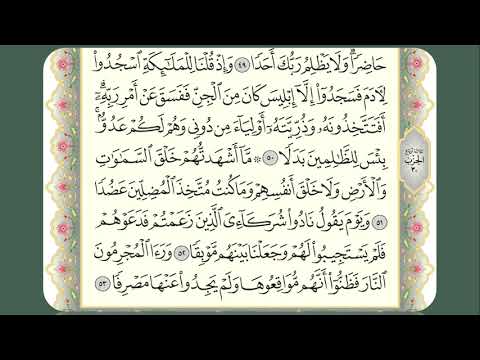 حَاضِرًا ۗ وَلَا يَظْلِمُ رَبُّكَ أَحَدًا ٤٩ وَإِذْ قُلْنَا لِلْمَلَٰٓئِكَةِ ٱسْجُدُوا۟
لِـَٔادَمَ فَسَجَدُوٓا۟ إِلَّآ إِبْلِيسَ كَانَ مِنَ ٱلْجِنِّ فَفَسَقَ عَنْ أَمْرِ رَبِّهِۦٓ ۗ
أَفَتَتَّخِذُونَهُۥ وَذُرِّيَّتَهُۥٓ أَوْلِيَآءَ مِن دُونِى وَهُمْ لَكُمْ عَدُوٌّۢ ۚ
بِئْسَ لِلظَّٰلِمِينَ بَدَلًا ٥٠ ۞ مَّآ أَشْهَدتُّهُمْ خَلْقَ ٱلسَّمَٰوَٰتِ
وَٱلْأَرْضِ وَلَا خَلْقَ أَنفُسِهِمْ وَمَا كُنتُ مُتَّخِذَ ٱلْمُضِلِّينَ عَضُدًا
٥١ وَيَوْمَ يَقُولُ نَادُوا۟ شُرَكَآءِىَ ٱلَّذِينَ زَعَمْتُمْ فَدَعَوْهُمْ
فَلَمْ يَسْتَجِيبُوا۟ لَهُمْ وَجَعَلْنَا بَيْنَهُم مَّوْبِقًا ٥٢ وَرَءَا ٱلْمُجْرِمُونَ
ٱلنَّارَ فَظَنُّوٓا۟ أَنَّهُم مُّوَاقِعُوهَا وَلَمْ يَجِدُوا۟ عَنْهَا مَصْرِفًا ٥٣
ثلاثة أرباع
الحزب
٣٠